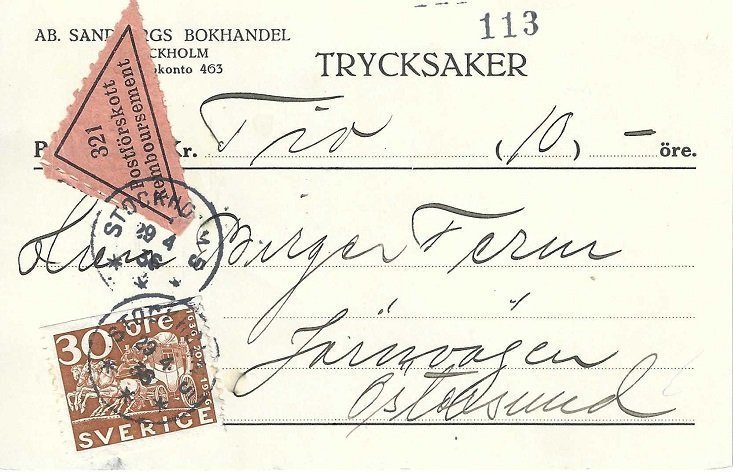 113
AB. SAND RGS BOKHANDEL
CKHOLM
konto 463
TRYCKSAKER
321
Postförskott
Remboursement
P Kr. Tio (10) — öre.
STO 
29 4
36
Birger
Järnvägen
Östersund
30 öre
1636 1936
SVERIGE